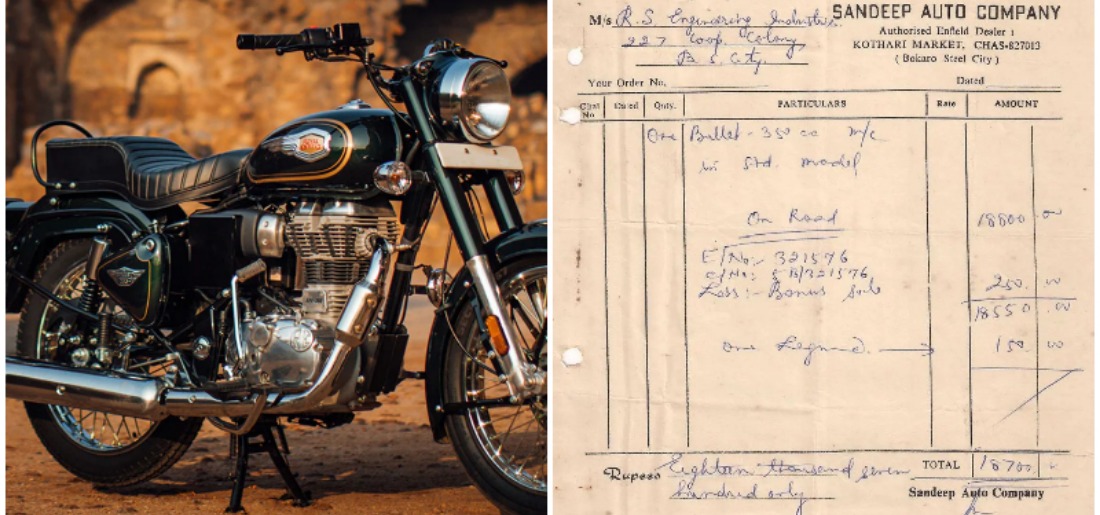 M/s R. S. Engineering Industries
227 Coop. Colony
B. S. City.
SANDEEP AUTO COMPANY
Authorised Enfield Dealer :
KOTHARI MARKET, CHAS-827013
( Bokaro Steel City )
Your Order No. Dated
Chal No Dated Qnty. PARTICULARS Rate AMOUNT
One Bullet - 350 cc m/c
in Std. model
On Road 18800.00
E/No:- 321576
C/No:- 5B/321576
Less:- Bonus 250.00
18550.00
one Legguard. 150.00
Rupees Eighteen thousand seven TOTAL 18700
hundred only Sandeep Auto Company